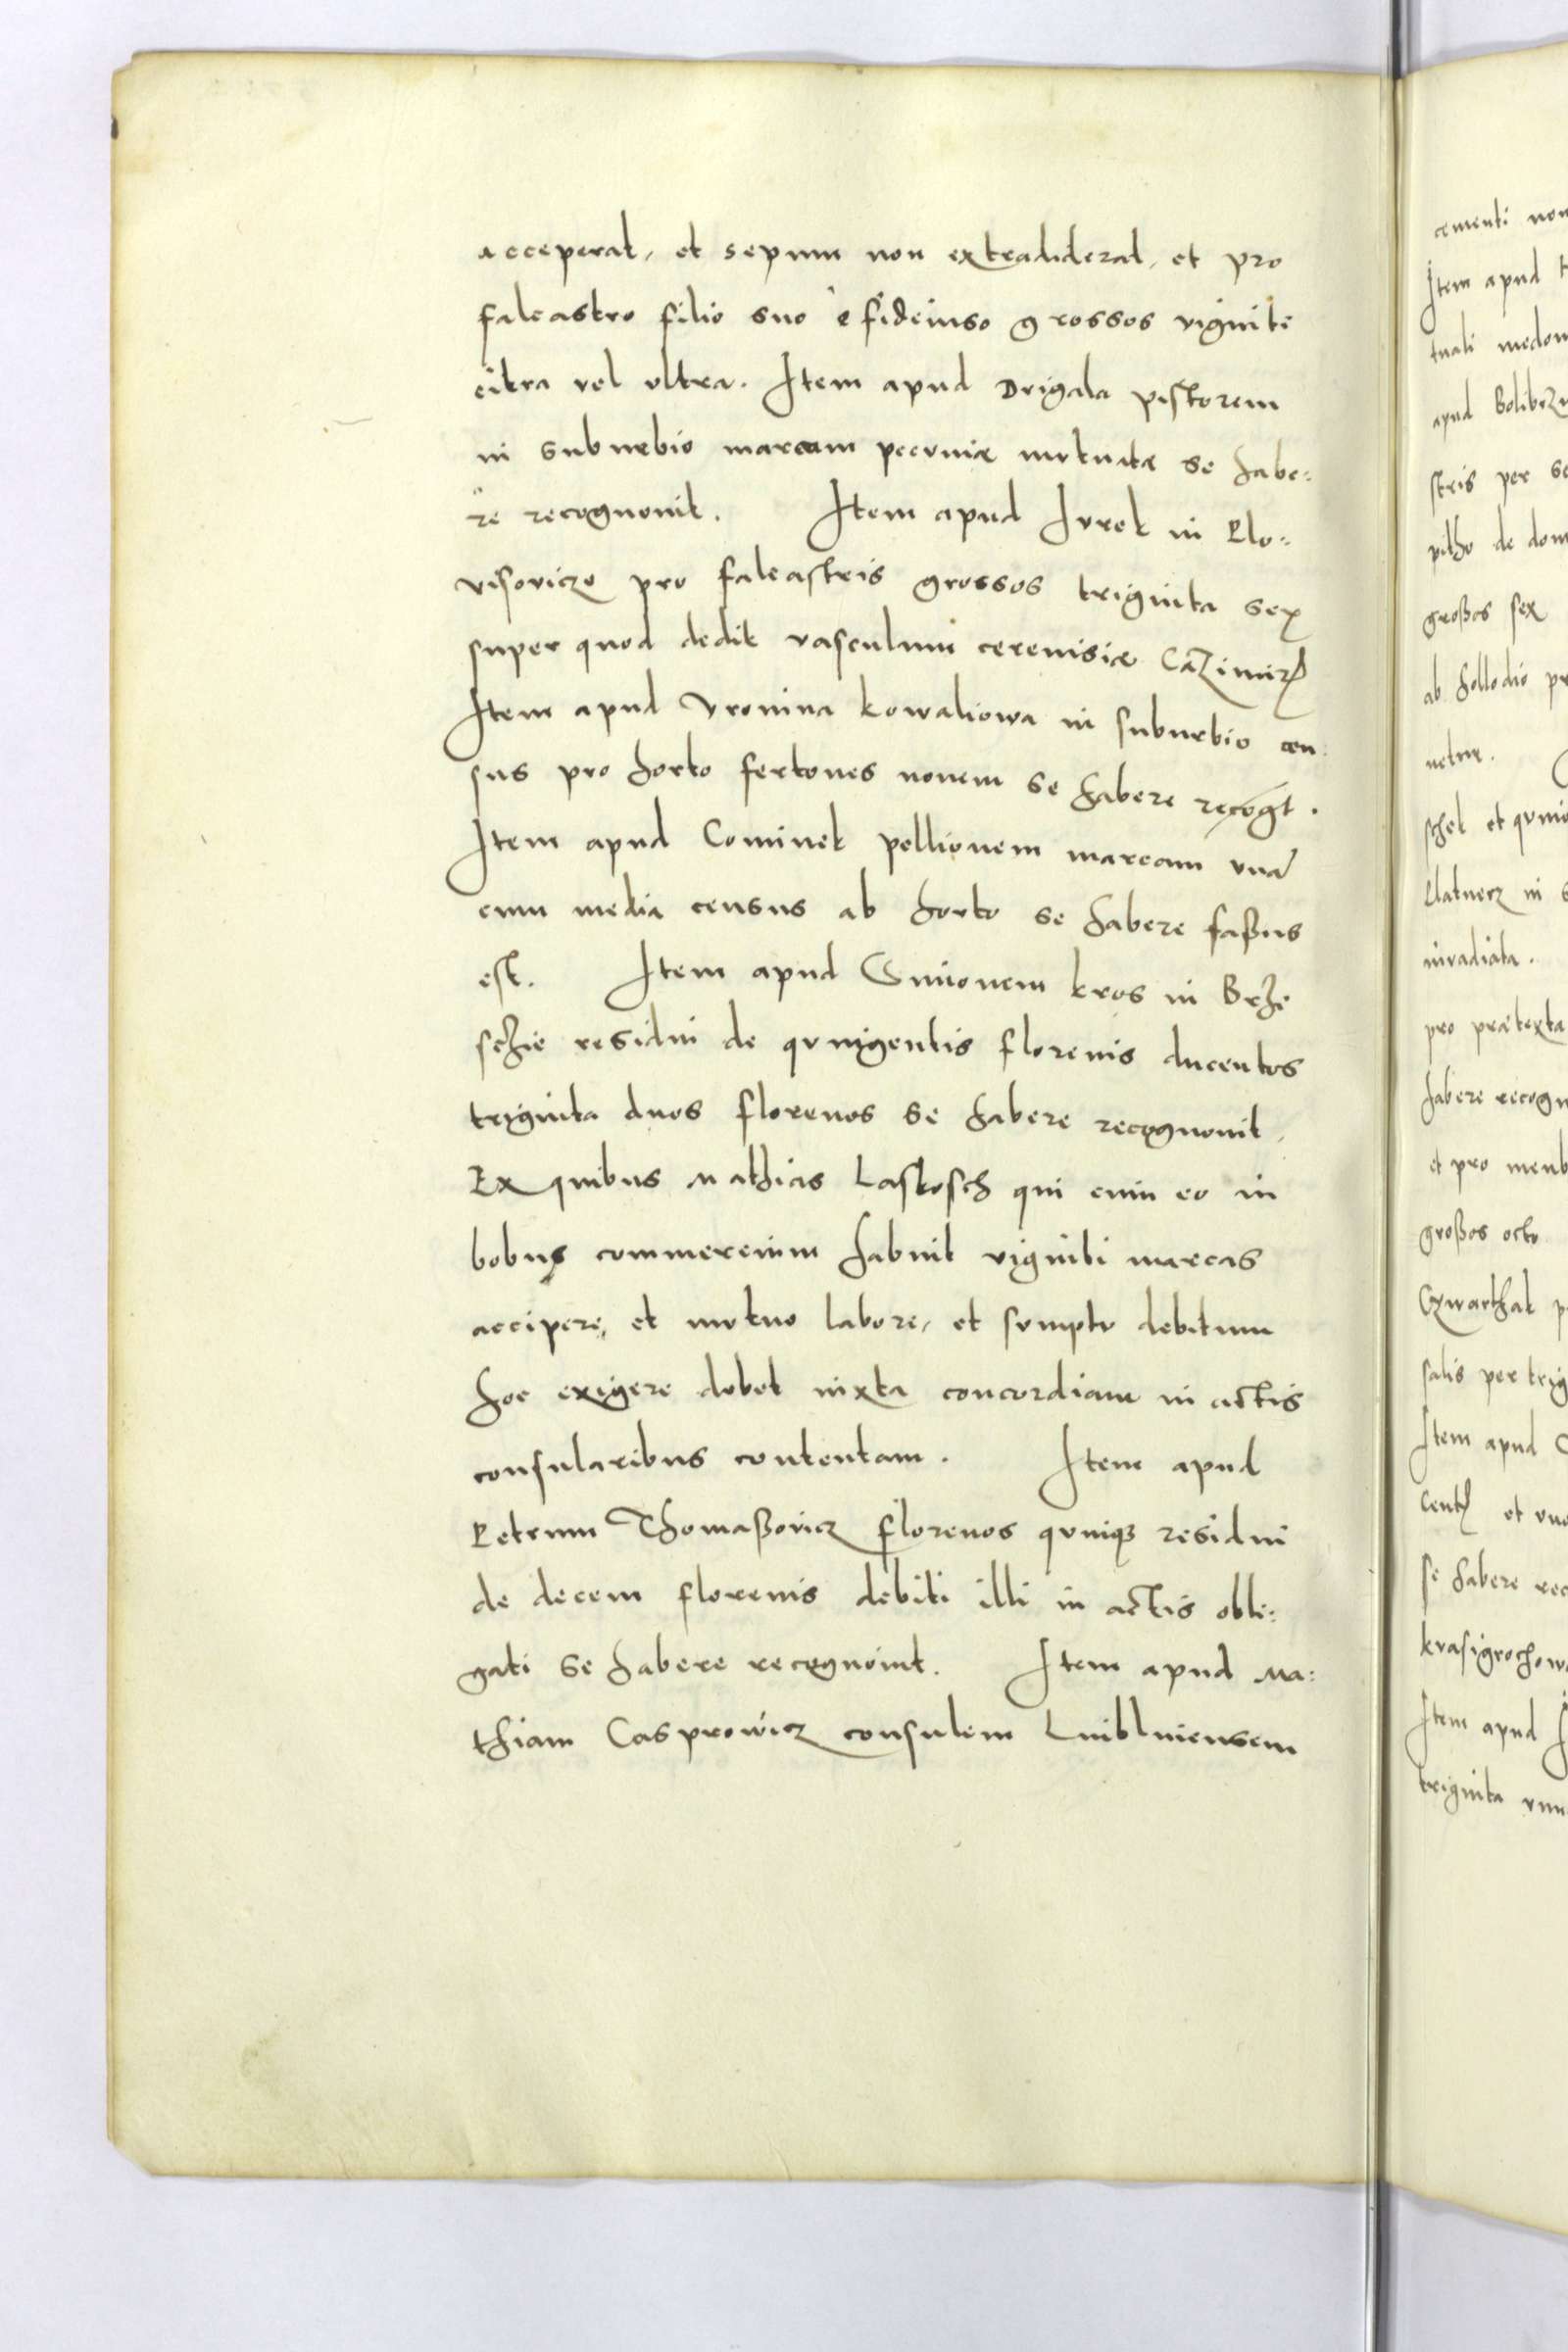 acceperat, et sepum non extradiderat, et pro
falcastro filio suo è fideiuso grossos viginti
citra vel ultra. Item apud Drigala pistorem
in suburbio marcam pecuniæ mutuatæ se habe:
re recognovit. Item apud Jurek in Plo:
visovicze pro falcastris grossos triginta sex
super quod dedit vasculum cerevisiæ Cazimirz
Item apud Vronina kowaliowa in suburbio cen:
sus pro horto fertones novem se habere recogt.
Item apud Cominek pellionem marcam una
cum media census ab horto se habere faßus
est. Item apud Simonem kros in Brze
sczie residui de quingentis florenis ducentos
triginta duos florenos se habere recognovit,
Ex quibus Mathias Laskosch qui cum eo in
bobus commercium habuit viginti marcas
accipere, et mutuo labore, et sumptu debitum
hoc exigere debet iuxta concordiam in actis
consularibus contentam. Item apud
Petrum Thomaßovicz florenos quinqз residui
de decem florenis debiti illi in actis obli:
gati se habere recognovit. Item apud Ma:
thiam Casprowicz consulem Lublinensem
cementi non
Item apud
tuali
apud
stris per
de
großos sex
ab
netur.
et
in
inradiata.
pro prætexta
habere recogn
et pro
großos octo
Czwarthak
salis per trig
Item apud
Cent et
se habere rec
krasigrochow
Item apud
triginta